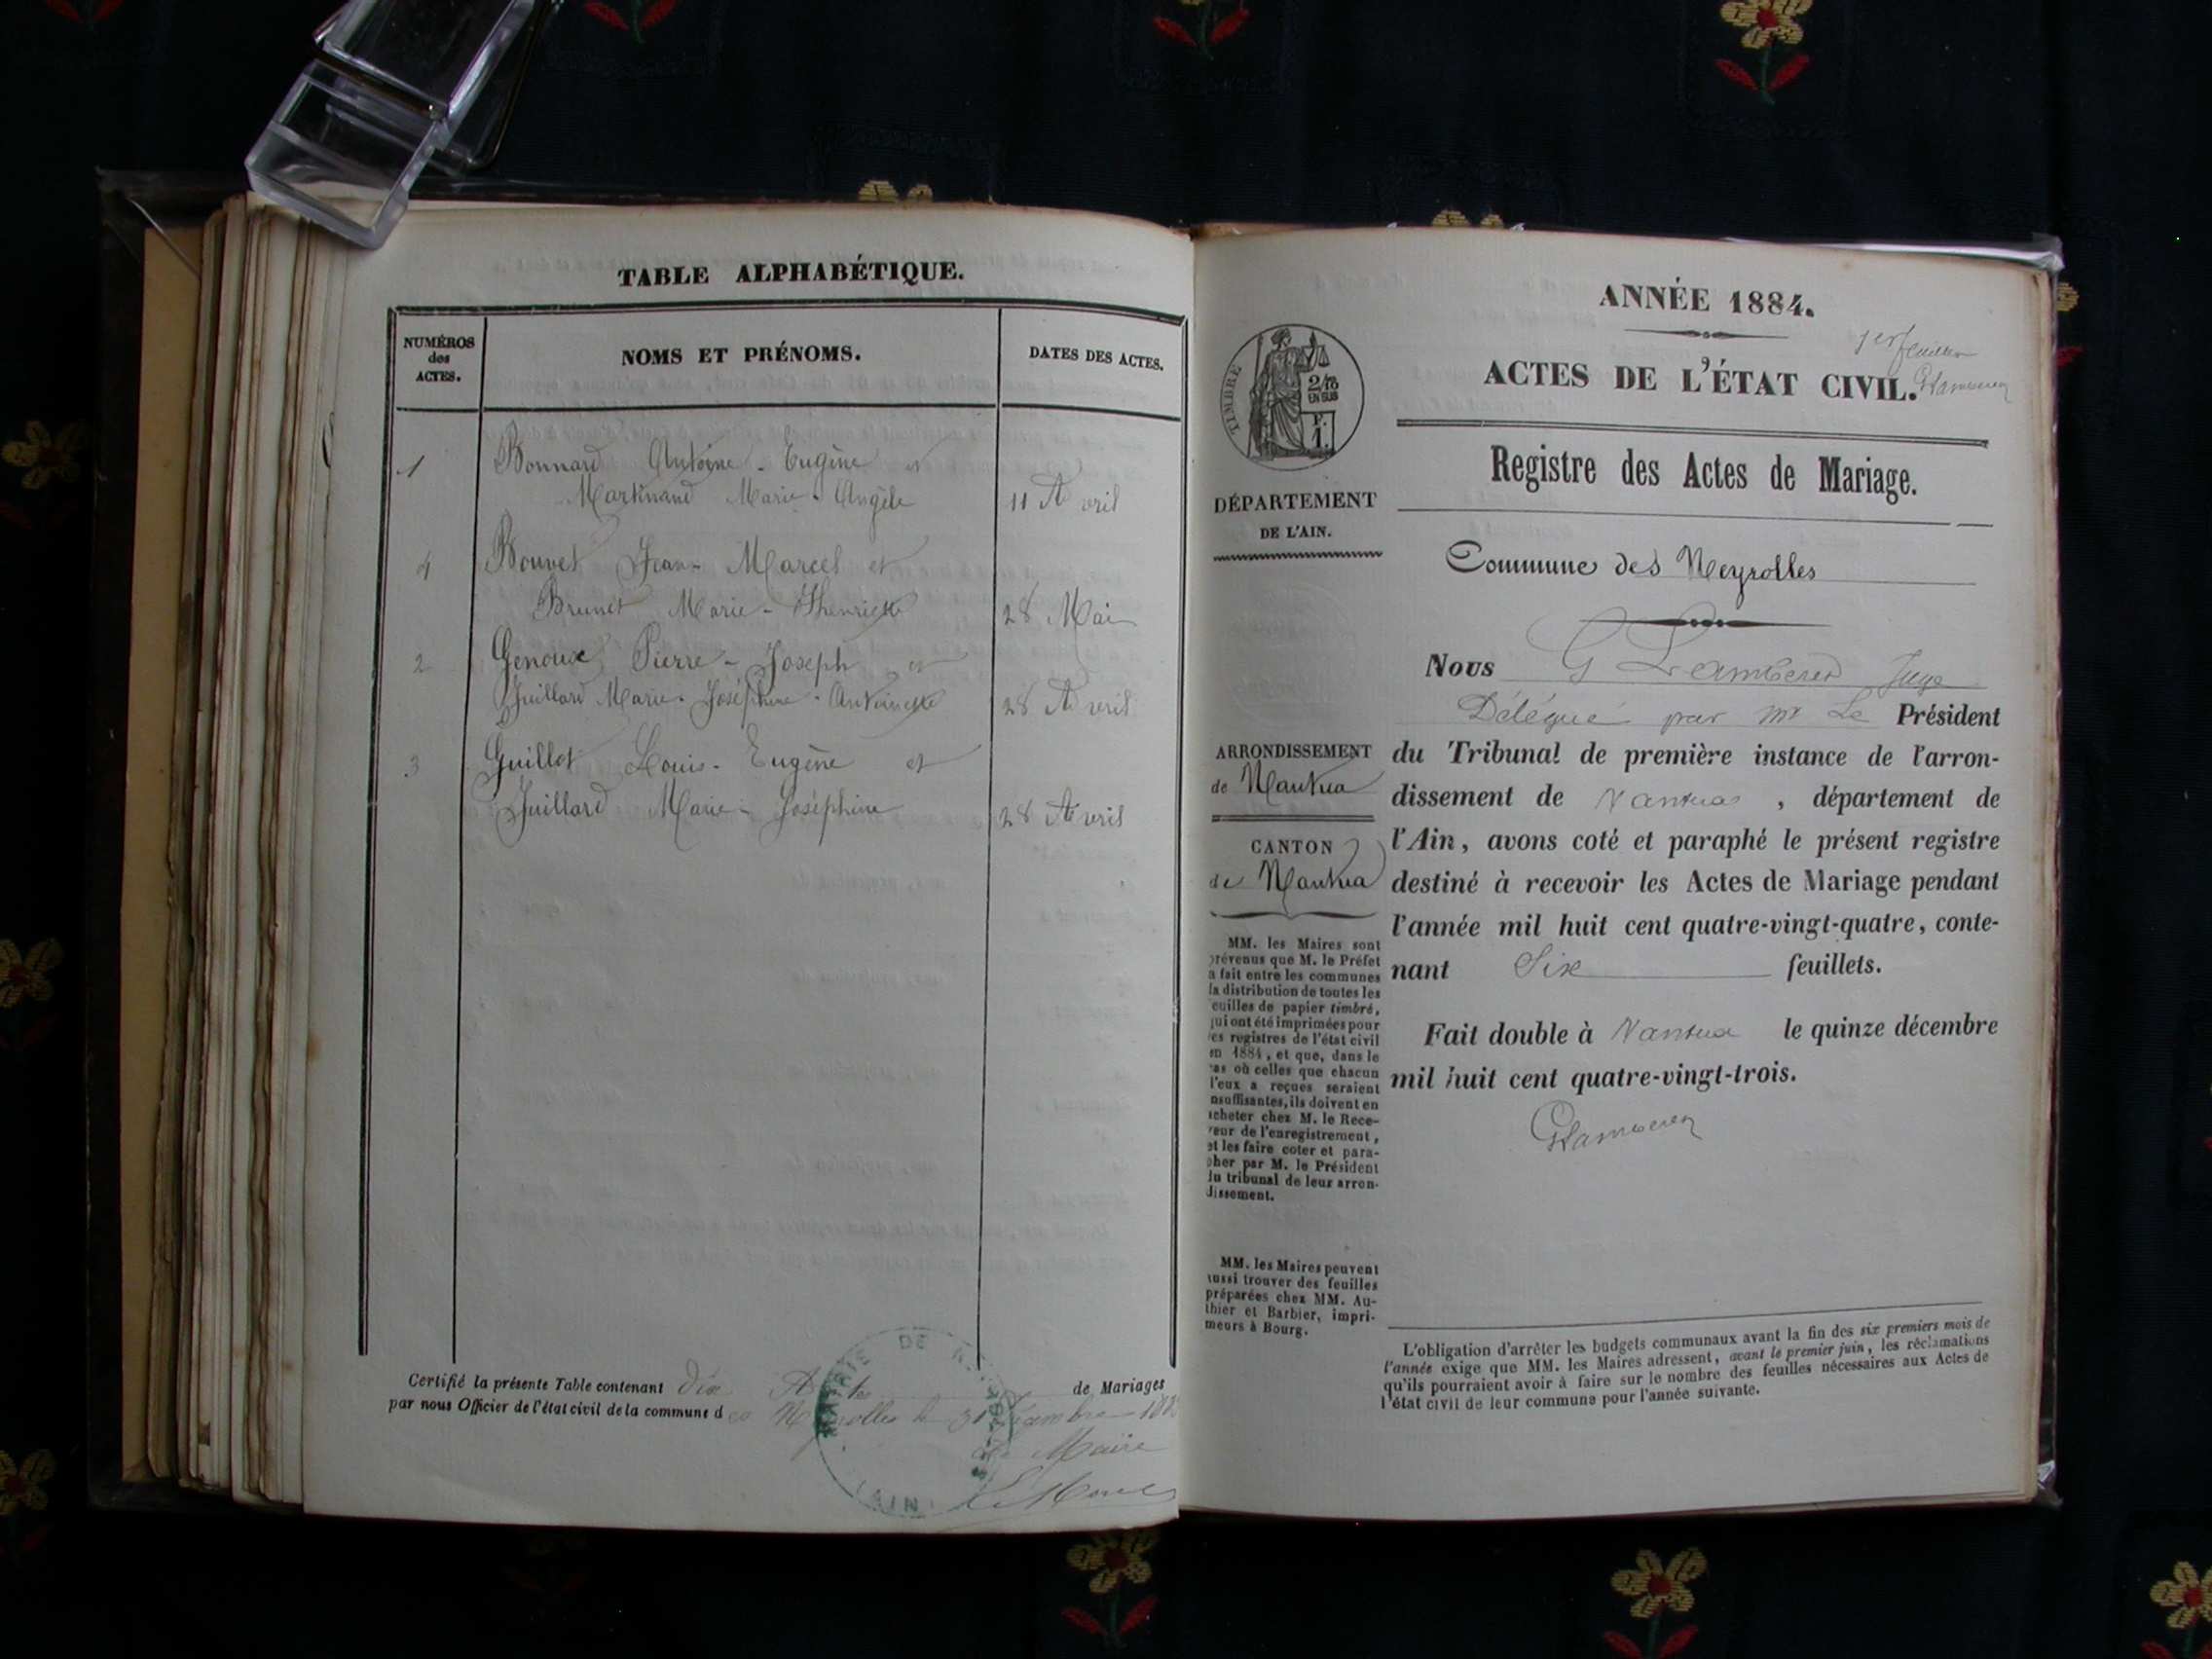 TABLE ALPHABÉTIQUE.
NUMÉROS
des
ACTES.
NOMS ET PRÉNOMS.
DATES DES ACTES.
1 Bonnard Antoine - Eugène et
Marie - Angèle 11 Avril
4 Bouvet Jean - Marcel et
Brunet Marie - 28 Mai
2 Genoux Pierre - Joseph et
Juillard Marie - Joséphine - Antoinette 28 Avril
3 Guillot Louis - Eugène et
Juillard Marie - Joséphine 28 Avril
Certifié la présente Table contenant de Mariages
par nous Officier de l'état civil de la commune des Neyrolles le 31 Décembre
Maire
MAIRIE DE
(AIN)
ANNÉE 1884.
1er feuillet
ACTES DE L'ÉTAT CIVIL.
TIMBRE
2/10
EN SUS
F.
1.
Registre des Actes de Mariage.
DÉPARTEMENT
DE L'AIN.
Commune des Neyrolles
Nous G Juge
Délégué par Mr Le Président
ARRONDISSEMENT
de Nantua
CANTON
de Nantua
du Tribunal de première instance de l'arron-
dissement de Nantua, département de
l'Ain, avons coté et paraphé le présent registre
destiné à recevoir les Actes de Mariage pendant
l'année mil huit cent quatre-vingt-quatre, conte-
nant Six feuillets.
Fait double à Nantua le quinze décembre
mil huit cent quatre-vingt-trois.
MM. les Maires sont
prévenus que M. le Préfet
a fait entre les communes
la distribution de toutes les
feuilles de papier timbré,
qui ont été imprimées pour
les registres de l'état civil
en 1884, et que, dans le
cas où celles que chacun
d'eux a reçues seraient
insuffisantes, ils doivent en
acheter chez M. le Rece-
veur de l'enregistrement,
et les faire coter et para-
pher par M. le Président
du tribunal de leur arron-
dissement.
MM. les Maires peuvent
aussi trouver des feuilles
préparées chez MM. Au-
thier et Barbier, impri-
meurs à Bourg.
L'obligation d'arrêter les budgets communaux avant la fin des six premiers mois de
l'année exige que MM. les Maires adressent, avant le premier juin, les réclamations
qu'ils pourraient avoir à faire sur le nombre des feuilles nécessaires aux Actes de
l'état civil de leur commune pour l'année suivante.